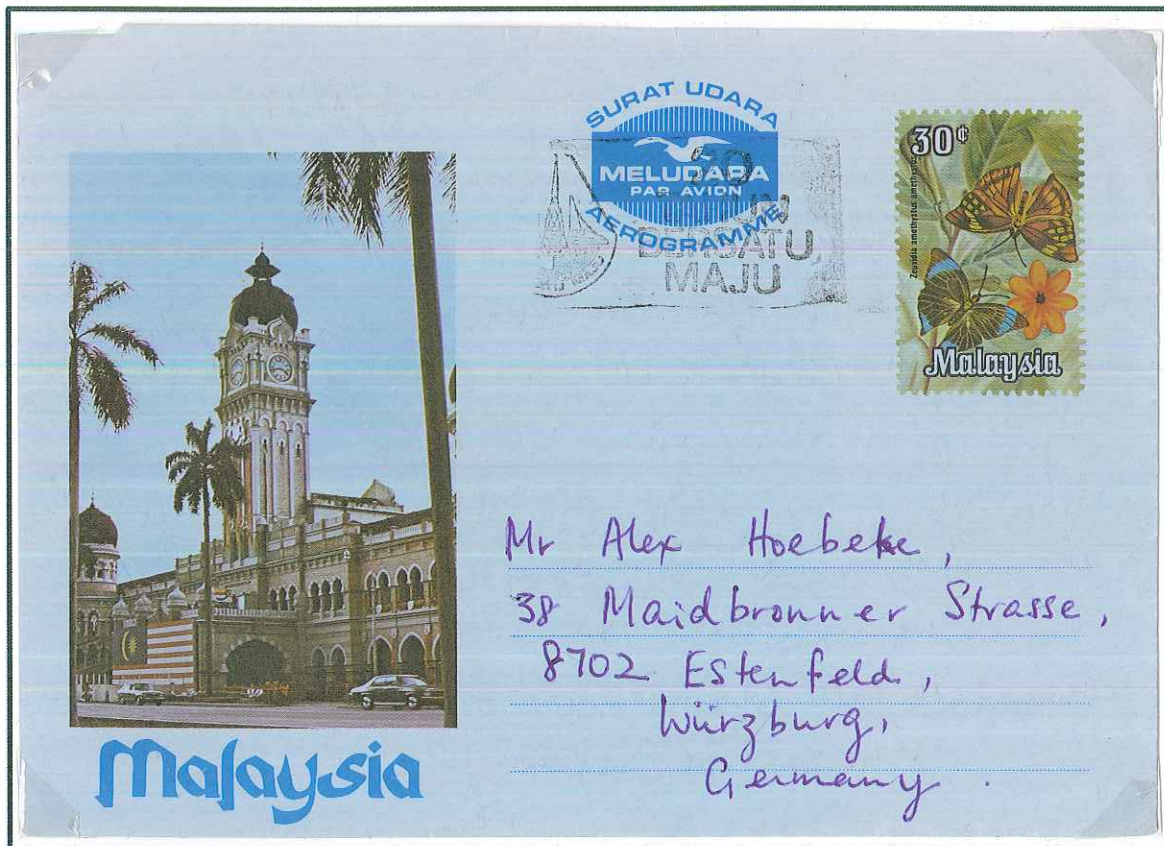 SURAT UDARA
MELUDARA
PAR AVION
AEROGRAMME
20
BERSATU,
MAJU
30¢
Zeuxidia amethystus amethystus
Malaysia
Mr Alex Hoebeke,
38 Maidbronner Strasse,
8702 Estenfeld,
Würzburg,
Germany.
Malaysia